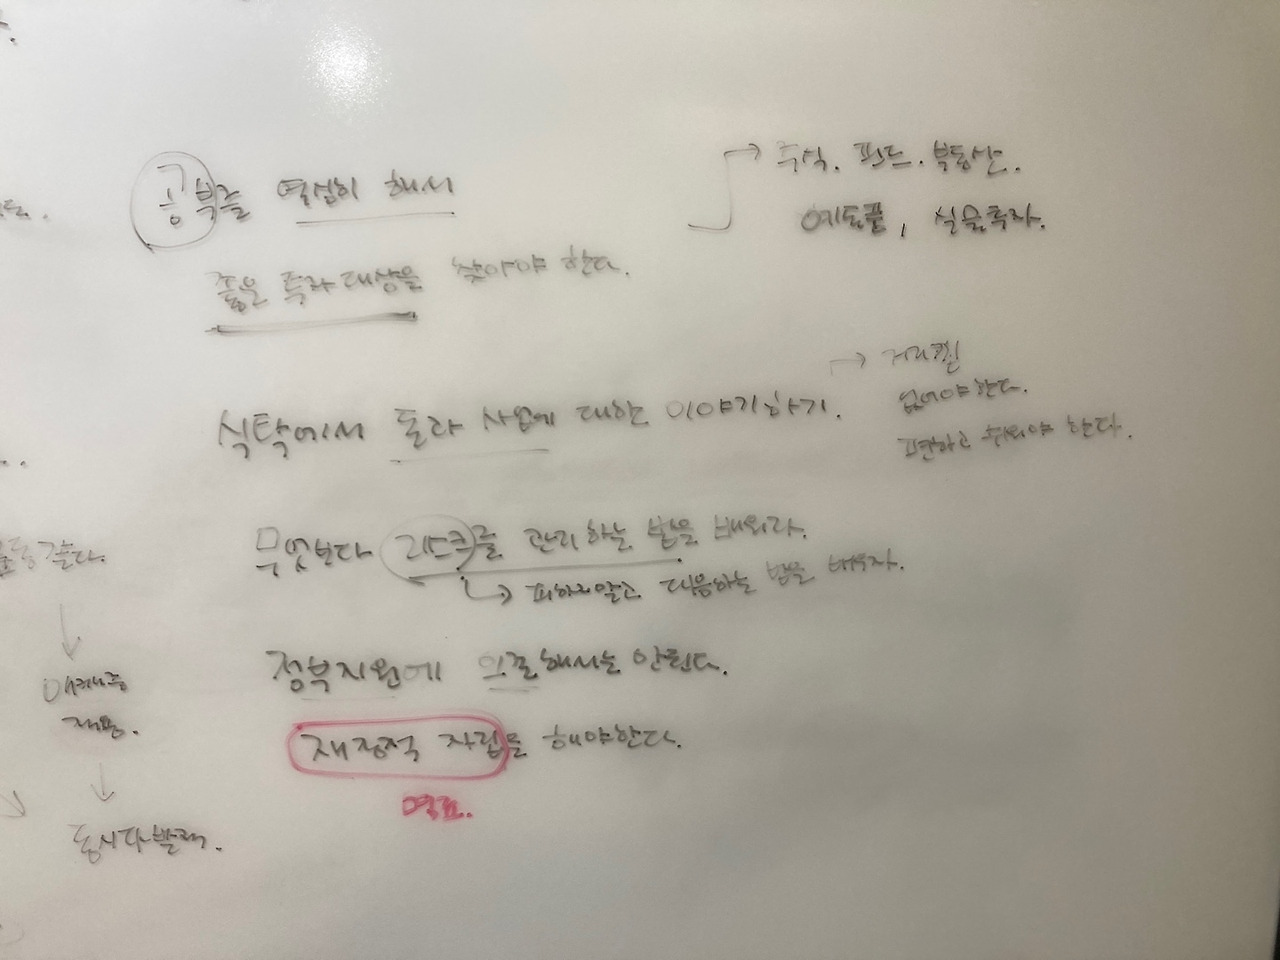 공부를 열심히 해서
좋은 투자 대상을 찾아야 한다.
→ 주식. 펀드. 부동산.
예토플, 실물투자.
식탁에서 돈과 사업에 대한 이야기하기.
→ 거리낌
없어야한다.
편하고 쉬워야 한다.
무엇보다 리스크를 관리하는 법을 배워라.
→ 피하지말고 대응하는 법을 배우자.
정부지원에 의존해서는 안된다.
재정적 자립을 해야한다.
목표.
같다.
↓
↓
동시다발적.